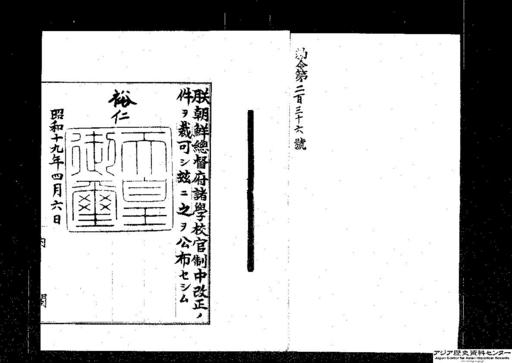 勅令第二百三十六號
朕朝鮮總督府諸學校官制中改正ノ
件ヲ裁可シ玆ニ之ヲ公布セシム
裕仁
天皇御璽
昭和十九年四月六日
内閣
アジア歴史資料センター
Japan Center for Asian Historical Records